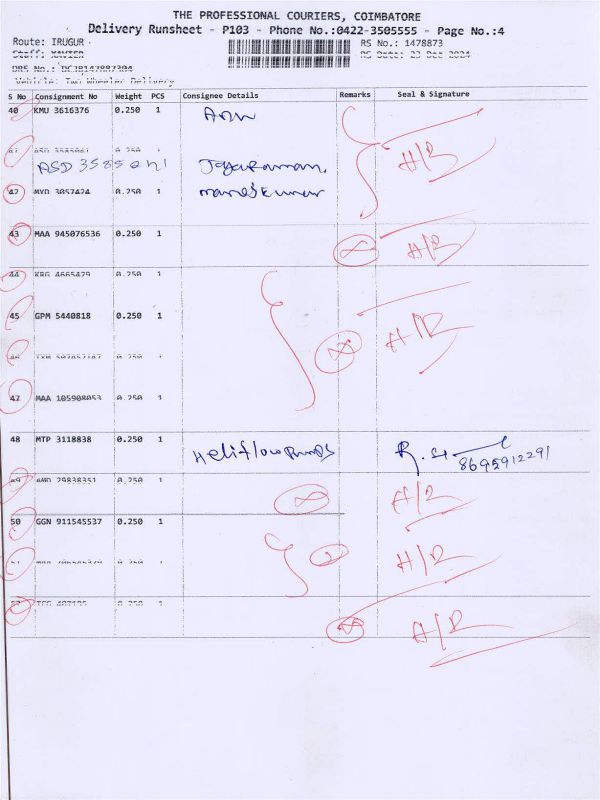 THE PROFESSIONAL COURIERS, COIMBATORE
Delivery Runsheet - P103 - Phone No.:0422-3505555 - Page No.:4
Route: IRUGUR RS No.: 1478873
Staff: XAVIER RS Date: 23 Dec 2024
DRS No.:
Vehicle: Two Wheeler Delivery
S No Consignment No Weight PCS Consignee Details Remarks Seal & Signature
40 KMU 3616376 0.250 1
41 ASD 3585041 0.250 1
ASD 3585041 Jayaraman. H/R
42 MYD 3057424 0.250 1
43 MAA 945076536 0.250 1 H/R
44 KRG 4665429 0.250 1
45 GPM 5440818 0.250 1 H/R
46 0.250 1
47 MAA 105908053 0.250 1
48 MTP 3118838 0.250 1 Heliflow Pumps 8695912291
49 AMD 29838351 0.250 1 H/R
50 GGN 911545537 0.250 1
51 0.250 1 H/R
52 0.250 1 H/R